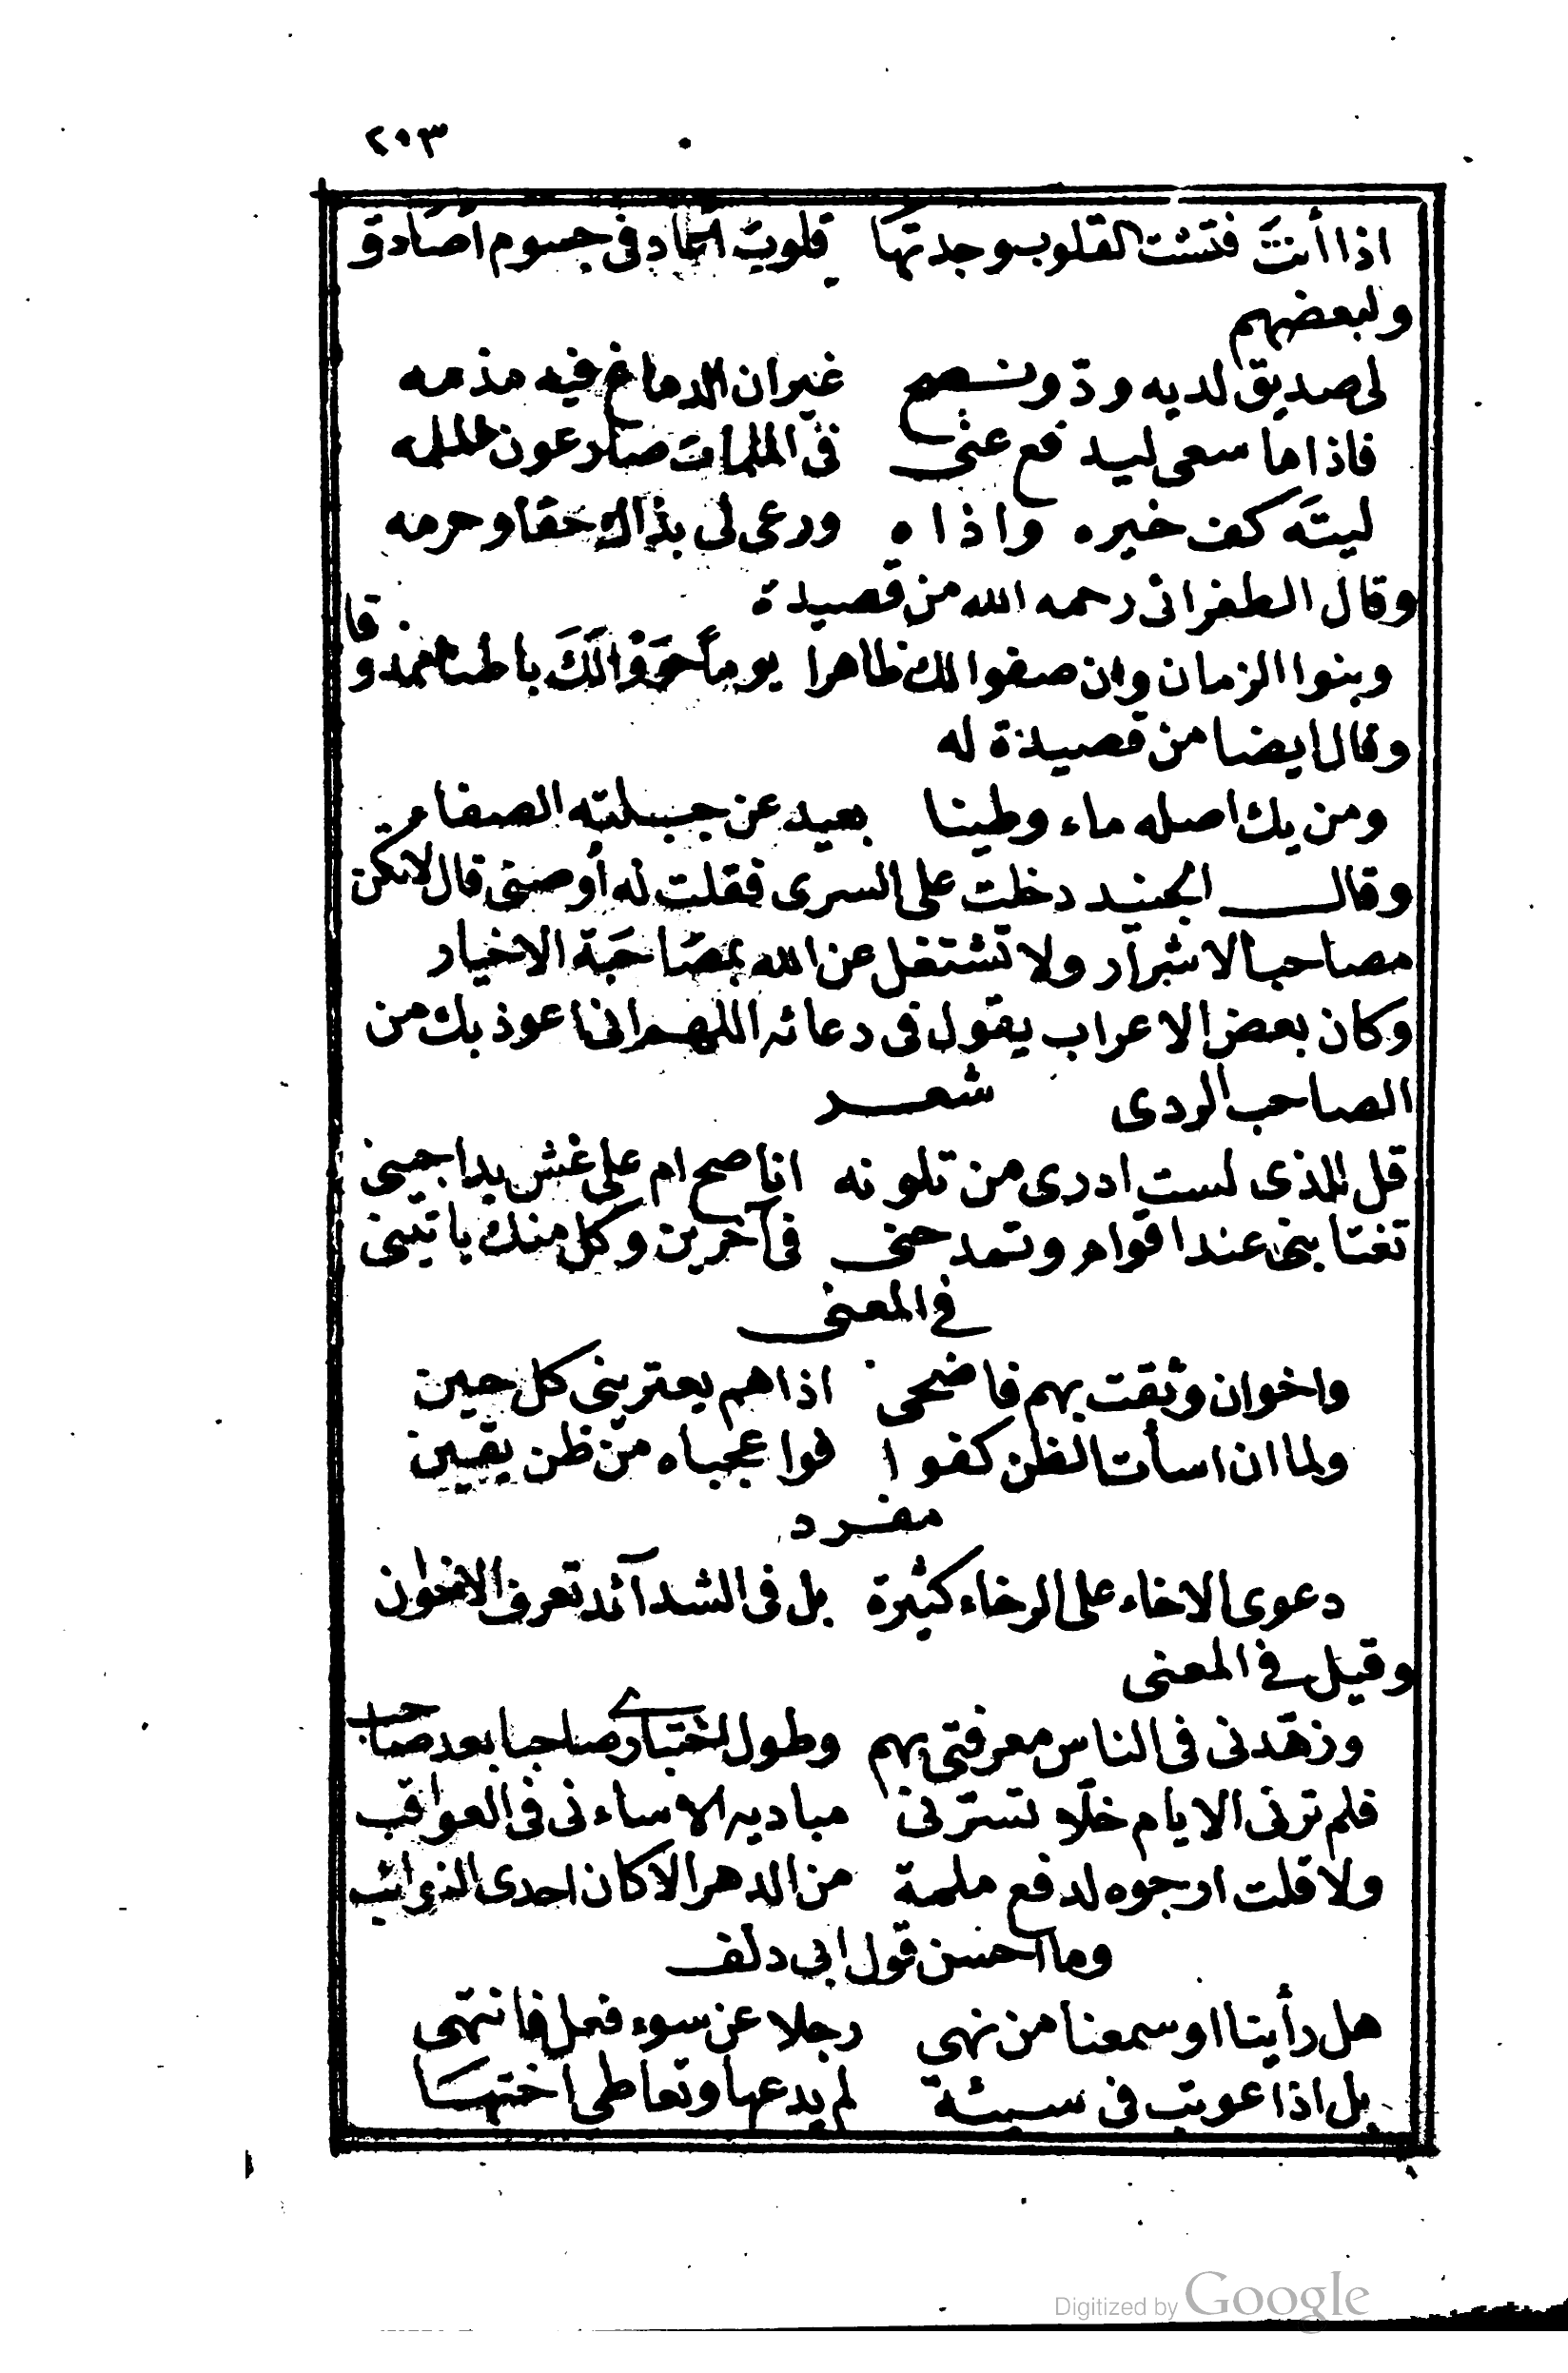 ٢٠٣
اذا أنتَ فتشت القلوب وجدتهَا قلوبَ اعاد فى جسوم اصَادق
ولبعضهم
لى صديق لديه ودّ ونصح غير ان الدماغ فيه مذمه
فاذا ما سعى ليدفع عنى فى الملمات صار عون الملمه
ليتَه كف خيره واذاه ورعى لى بذاك حقا وحرمه
وقال الطغرانى رحمه الله من قصيدة
وبنوا الزمان وان صفوا لك ظاهرا يوماً طَوَوْا لَكَ باطنا ممذوقا
وقال ايضا من قصيدة له
ومن يك اصله ماء وطينا بعيد عن جبلته الصفاء
وقال الجنيد دخلت على السرى فقلت له أوصنى قال لا تكن
مصاحبا لاشرار ولا تشتغل عن الله بمصَاحَبة الاخيار
وكان بعض الاعراب يقول فى دعائه اللهم انى اعوذ بك من
الصاحب الردى شعر
قل للذى لست ادرى من تلونه اناصح ام على غش يداجينى
تغتابنى عند اقوام وتمدحنى فى آخرين وكل منك ياتينى
فى المعنى
واخوان وثقت بهم فاضحى اذاهم يعترينى كل حين
ولما ان اسأت الظن كفوا فوا عجباه من ظن يقين
مفرد
دعوى الاخاء على الرخاء كثيرة بل فى الشدآئد تعرف الاخوان
وقيل فى المعنى
وزهّدنى فى الناس معرفتى بهم وطول اختبارى صاحبا بعد صاحب
فلم ترنى الايام خلّا تسرّنى مباديه الا ساءنى فى العواقب
ولا قلت ارجوه لدفع ملمة من الدهر الا كان احدى النوائب
وما احسن قول ابى دلف
هل رأينا او سمعنا من نهى رجلا عن سوء فعل فانتهى
بل اذا عوتب فى سيئة لم يدعها وتعاطى اختهَا
Digitized by Google